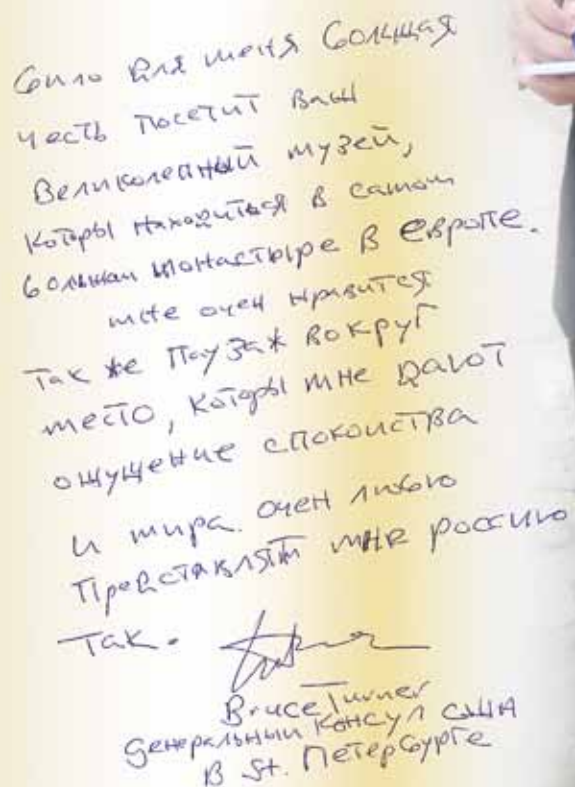 было для меня болшая
честь посетит ваш
великолепный музей,
которы находиться в самом
болшом монастыре в европе.
мне очен нравится
так же паузаж вокруг
место, которы мне дают
ощущение спокоиства
и мира. очен люблю
представлят мне россию
так.
Bruce Turner
генеральный консул сшА
в St. Петербурге